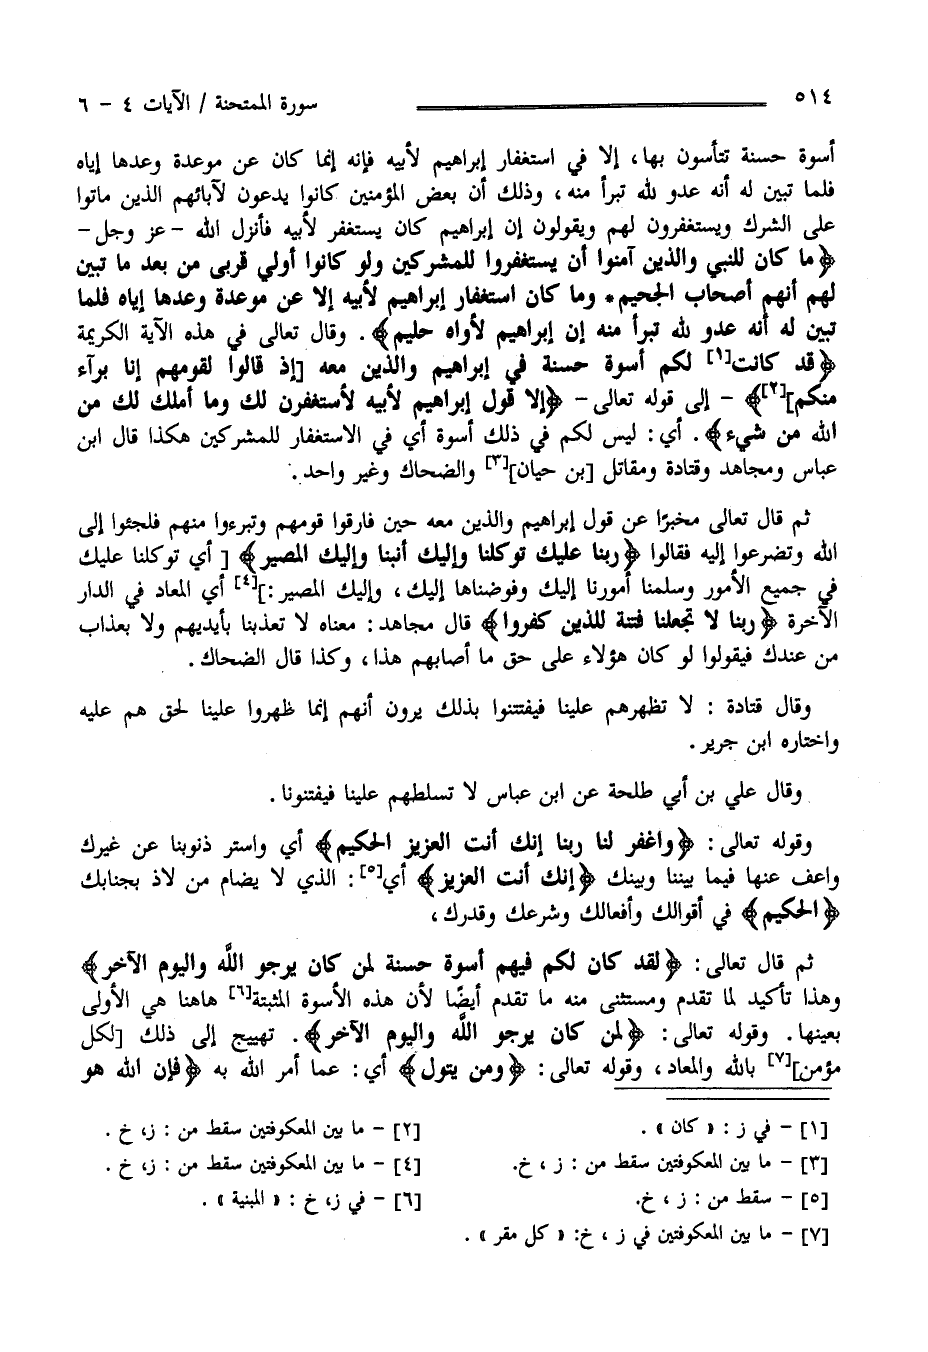 ٥١٤ سورة الممتحنة / الآيات ٤ - ٦
أسوة حسنة تتأسون بها، إلا في استغفار إبراهيم لأبيه فإنه إنما كان عن موعدة وعدها إياه
فلما تبين له أنه عدو لله تبرأ منه، وذلك أن بعض المؤمنين كانوا يدعون لآبائهم الذين ماتوا
على الشرك ويستغفرون لهم ويقولون إن إبراهيم كان يستغفر لأبيه فأنزل الله -عز وجل-
﴿ما كان للنبي والذين آمنوا أن يستغفروا للمشركين ولو كانوا أولي قربى من بعد ما تبين
لهم أنهم أصحاب الجحيم* وما كان استغفار إبراهيم لأبيه إلا عن موعدة وعدها إياه فلما
تبين له أنه عدو لله تبرأ منه إن إبراهيم لأواه حليم﴾. وقال تعالى في هذه الآية الكريمة
﴿قد كانت[١] لكم أسوة حسنة في إبراهيم والذين معه [إذ قالوا لقومهم إنا برآء
منكم][٢]﴾ - إلى قوله تعالى- ﴿إلا قول إبراهيم لأبيه لأستغفرن لك وما أملك لك من
الله من شيء﴾. أي: ليس لكم في ذلك أسوة أي في الاستغفار للمشركين هكذا قال ابن
عباس ومجاهد وقتادة ومقاتل [بن حيان][٣] والضحاك وغير واحد.
ثم قال تعالى مخبرًا عن قول إبراهيم والذين معه حين فارقوا قومهم وتبرءوا منهم فلجئوا إلى
الله وتضرعوا إليه فقالوا ﴿ربنا عليك توكلنا وإليك أنبنا وإليك المصير﴾ [ أي توكلنا عليك
في جميع الأمور وسلمنا أمورنا إليك وفوضناها إليك، وإليك المصير:][٤] أي المعاد في الدار
الآخرة ﴿ربنا لا تجعلنا فتنة للذين كفروا﴾ قال مجاهد: معناه لا تعذبنا بأيديهم ولا بعذاب
من عندك فيقولوا لو كان هؤلاء على حق ما أصابهم هذا، وكذا قال الضحاك.
وقال قتادة : لا تظهرهم علينا فيفتتنوا بذلك يرون أنهم إنما ظهروا علينا لحق هم عليه
واختاره ابن جرير.
وقال علي بن أبي طلحة عن ابن عباس لا تسلطهم علينا فيفتنونا.
وقوله تعالى: ﴿واغفر لنا ربنا إنك أنت العزيز الحكيم﴾ أي واستر ذنوبنا عن غيرك
واعف عنها فيما بيننا وبينك ﴿إنك أنت العزيز﴾ أي[٥]: الذي لا يضام من لاذ بجنابك
﴿الحكيم﴾ في أقوالك وأفعالك وشرعك وقدرك،
ثم قال تعالى: ﴿لقد كان لكم فيهم أسوة حسنة لمن كان يرجو اللَّه واليوم الآخر﴾
وهذا تأكيد لما تقدم ومستثنى منه ما تقدم أيضًا لأن هذه الأسوة المثبتة[٦] هاهنا هي الأولى
بعينها. وقوله تعالى: ﴿لمن كان يرجو اللَّه واليوم الآخر﴾. تهييج إلى ذلك [لكل
مؤمن][٧] بالله والمعاد، وقوله تعالى: ﴿ومن يتول﴾ أي: عما أمر الله به ﴿فإن الله هو
[١] - في ز : « كان » . [٢] - ما بين المعكوفتين سقط من : ز، خ .
[٣] - ما بين المعكوفتين سقط من : ز ، خ. [٤] - ما بين المعكوفتين سقط من : ز، خ .
[٥] - سقط من : ز ، خ. [٦] - في ز، خ : « المبنية » .
[٧] - ما بين المعكوفتين في ز ، خ: « كل مقر » .